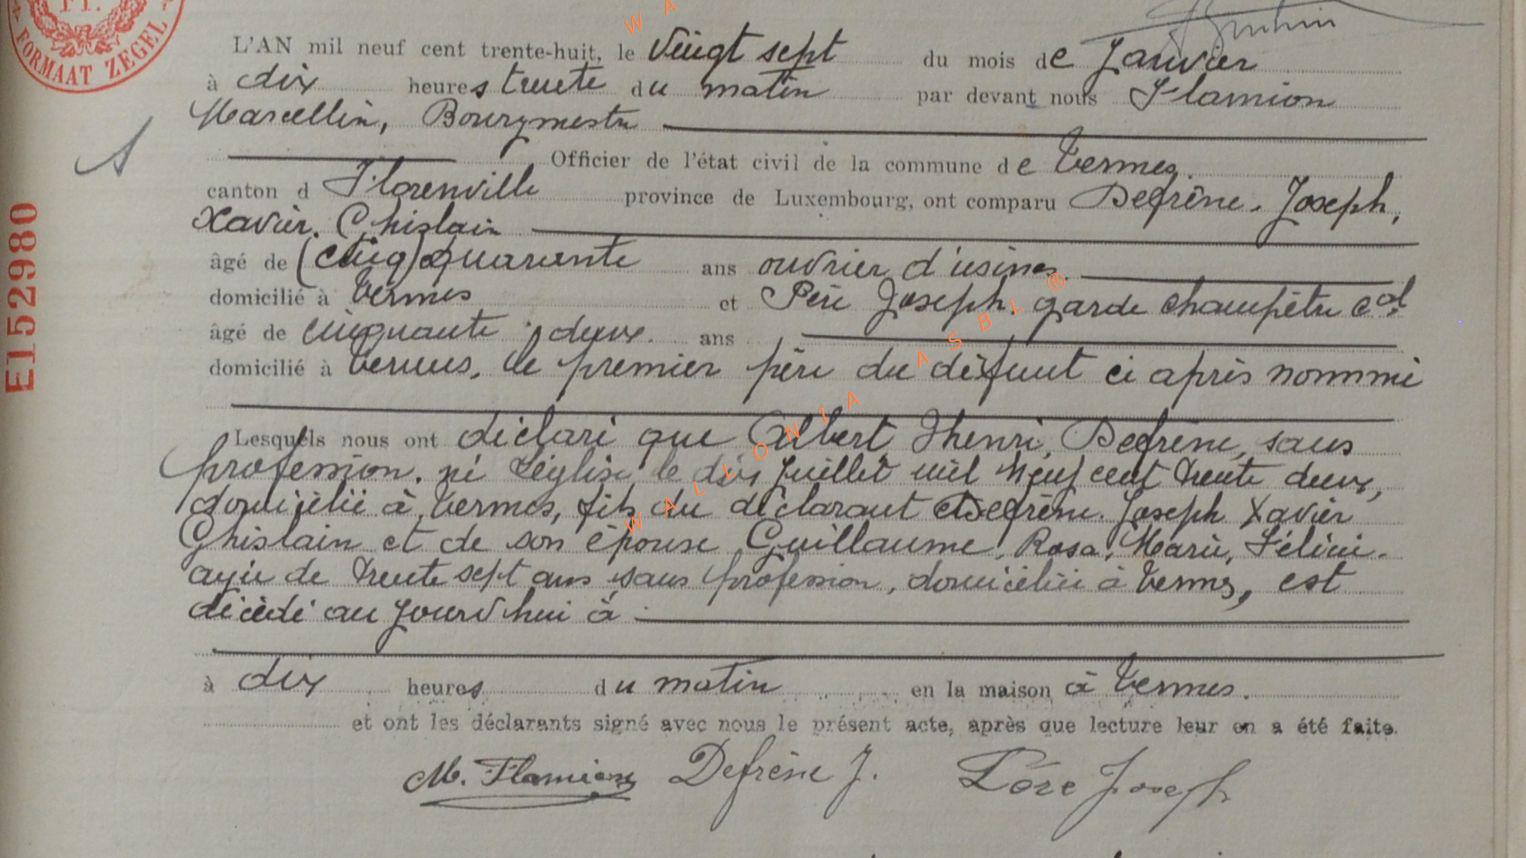 FORMAAT ZEGEL
E152980
L'AN mil neuf cent trente-huit, le vingt sept du mois de Janvier
à dix heures trente du matin par devant nous Flamion
Marcellin, Bourgmestre
Officier de l'état civil de la commune de Termes.
canton d Florenville province de Luxembourg, ont comparu Defrène. Joseph,
Xavier. Ghislain
âgé de (cinq) quarante ans ouvrier d'usines.
domicilié à Termes et Père Joseph. garde champêtre cal
âgé de cinquante deux. ans
domicilié à Termes, le premier père du défunt ci après nommé
Lesquels nous ont déclaré que Albert Henri, Defrène, sans
profession. né Léglise, le dix Juillet mil neuf cent trente deux,
domicilié à Termes, fils du déclarant Defrène. Joseph Xavier
Ghislain et de son épouse Guillaume, Rosa, Marie, Félicie.
agée de trente sept ans sans profession, domiciliée à Termes, est
décédé au jourd'hui à
à dix heures du matin en la maison à Termes.
et ont les déclarants signé avec nous le présent acte, après que lecture leur en a été faite.
M. Flamion Defrène J. Père Joseph
WALLONIA ASBL ®